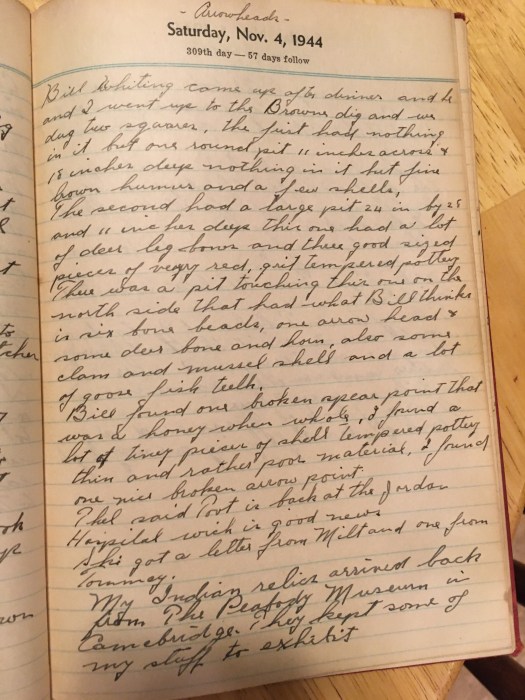 - Arrowheads -
Saturday, Nov. 4, 1944
309th day — 57 days follow
Bill Whiting came up after dinner and he
and I went up to the Browne dig and we
dug two squares, the first had nothing
in it but one round pit 11 inches across &
18 inches deep nothing in it but fine
brown humus and a few shells.
The second had a large pit 24 in by 28
and 11 inches deep this one had a lot
of deer leg bones and three good sized
pieces of verry red, grit tempered pottery
There was a pit touching this one on the
north side that had what Bill thinks
is six bone beads, one arrow head &
some deer bone and horn, also some
clam and mussel shell and a lot
of goose fish teeth.
Bill found one broken spear point that
was a honey when whole, I found a
lot of tiney pieces of shell tempered pottery
thin and rather poor material, I found
one nice broken arrow point.
Thel said Toot is back at the Jordan
Hospital wich is good news
She got a letter from Milt and one from
Tommey.
My Indian relics arrived back
from The Peabody Museum in
Camebridge. They kept some of
my stuff to exhibit